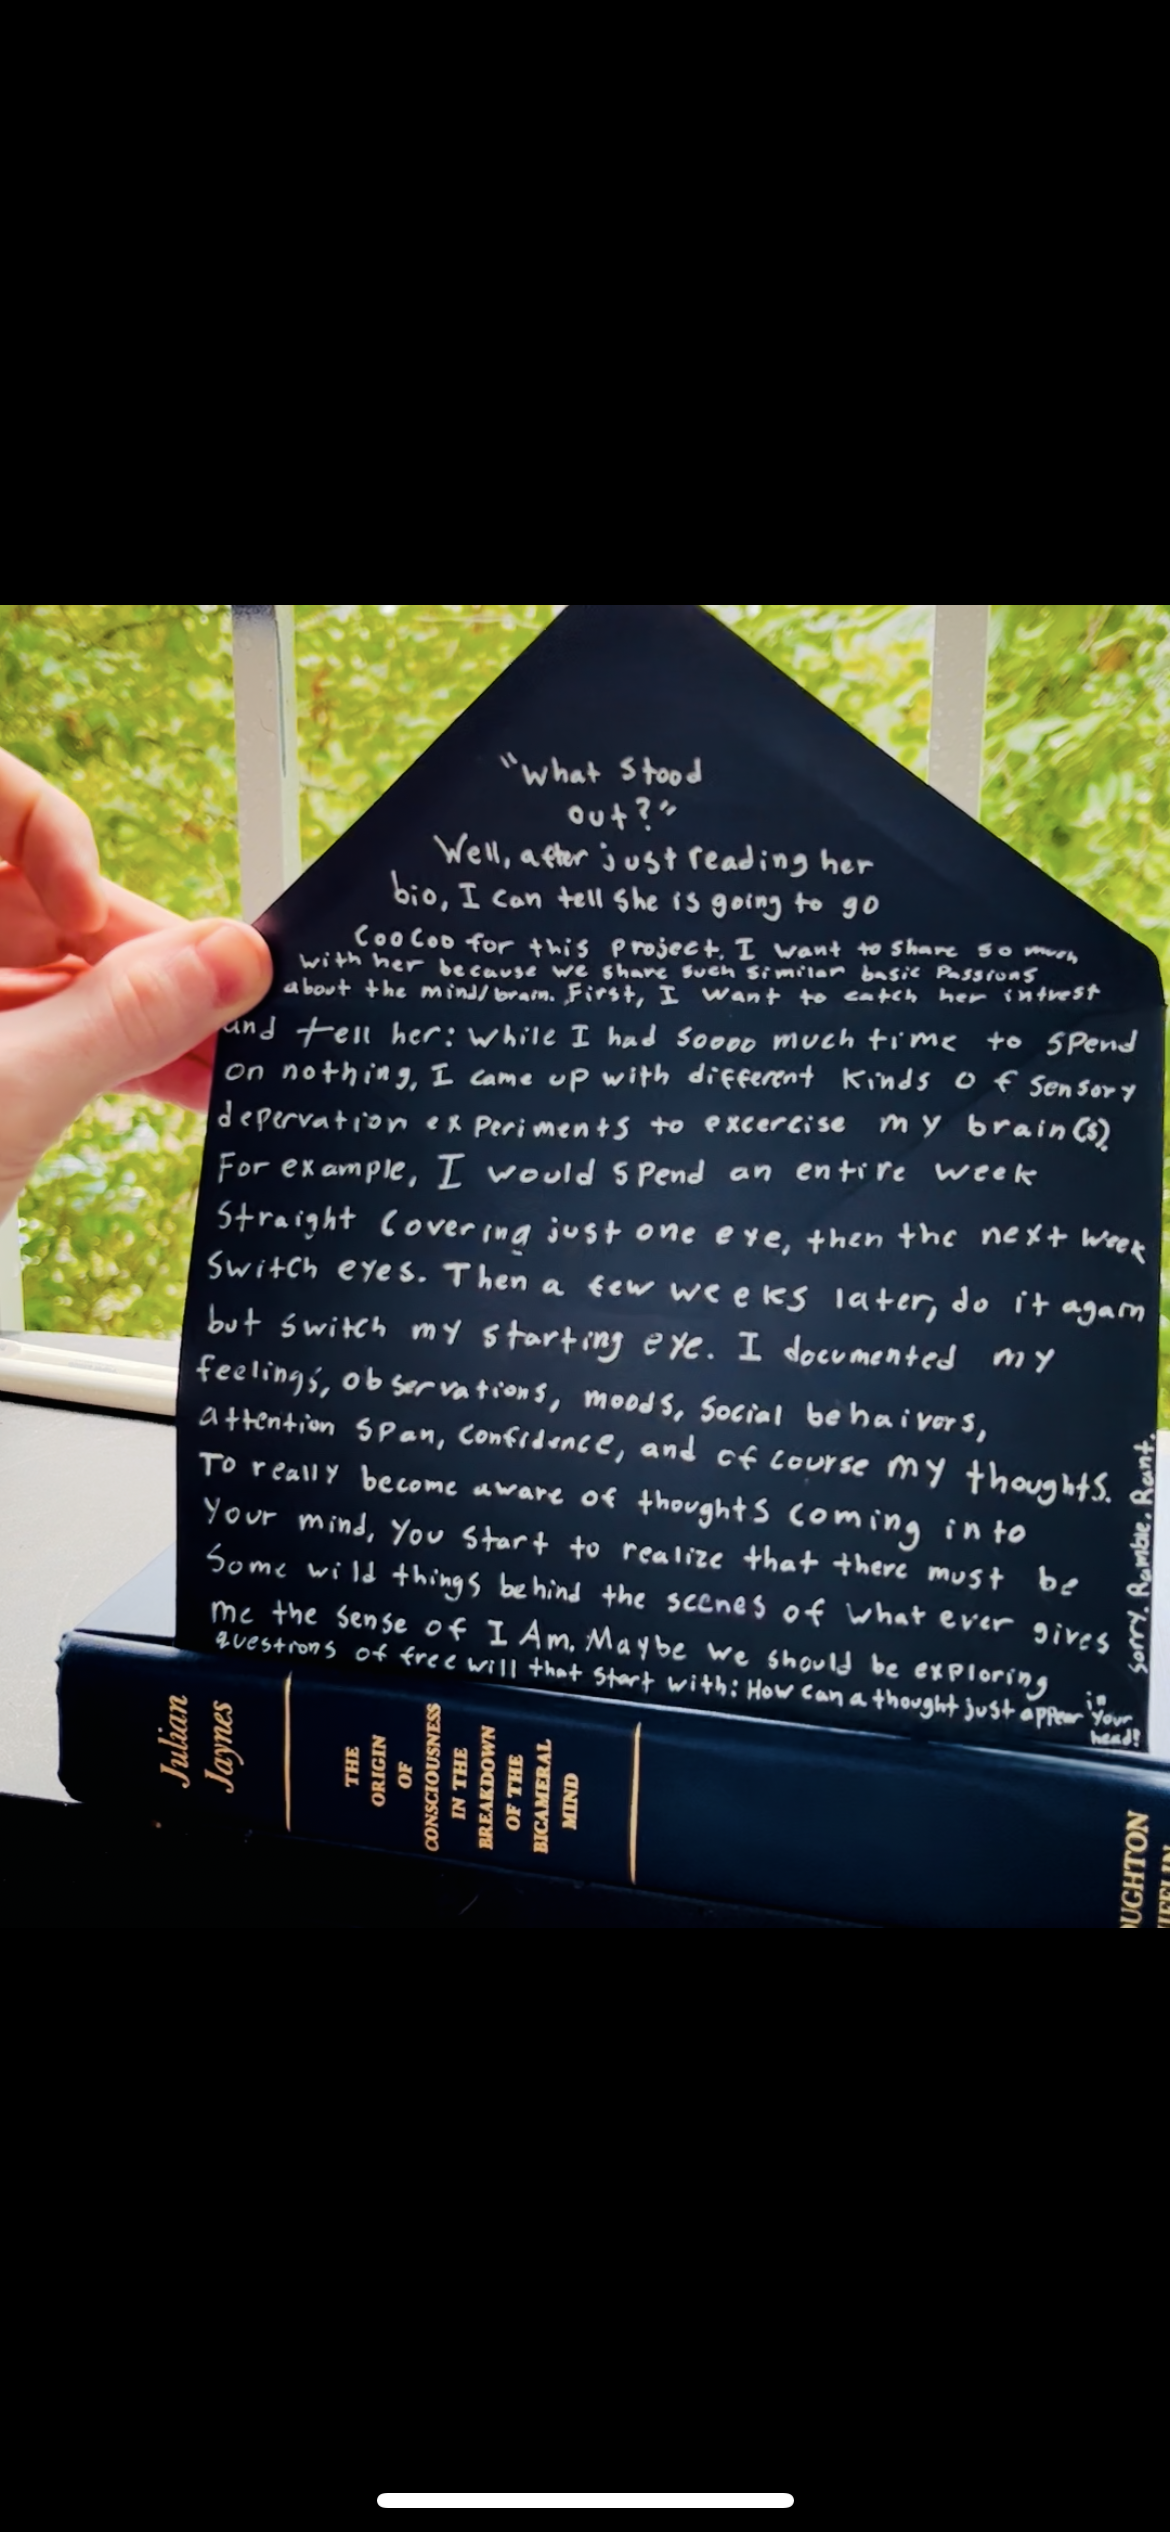 "What Stood
out?"
Well, after just reading her
bio, I can tell she is going to go
CooCoo for this project. I want to share so much
with her because we share such similar basic Passions
about the mind/brain. First, I want to catch her intrest
and tell her: While I had soooo much time to spend
on nothing, I came up with different kinds of sensory
depervation experiments to excercise my brain(s).
For example, I would spend an entire week
straight covering just one eye, then the next week
switch eyes. Then a few weeks later, do it again
but switch my starting eye. I documented my
feelings, observations, moods, social behaivors,
attention span, confidence, and of course my thoughts.
To really become aware of thoughts coming into
your mind, you start to realize that there must be
some wild things behind the scenes of what ever gives
me the sense of I Am. Maybe we should be exploring
questions of free will that start with: How can a thought just appear in your
head?
Sorry. Ramble. Rant.
Julian
Jaynes
THE
ORIGIN
OF
CONSCIOUSNESS
IN THE
BREAKDOWN
OF THE
BICAMERAL
MIND
OUGHTON
IFFLIN